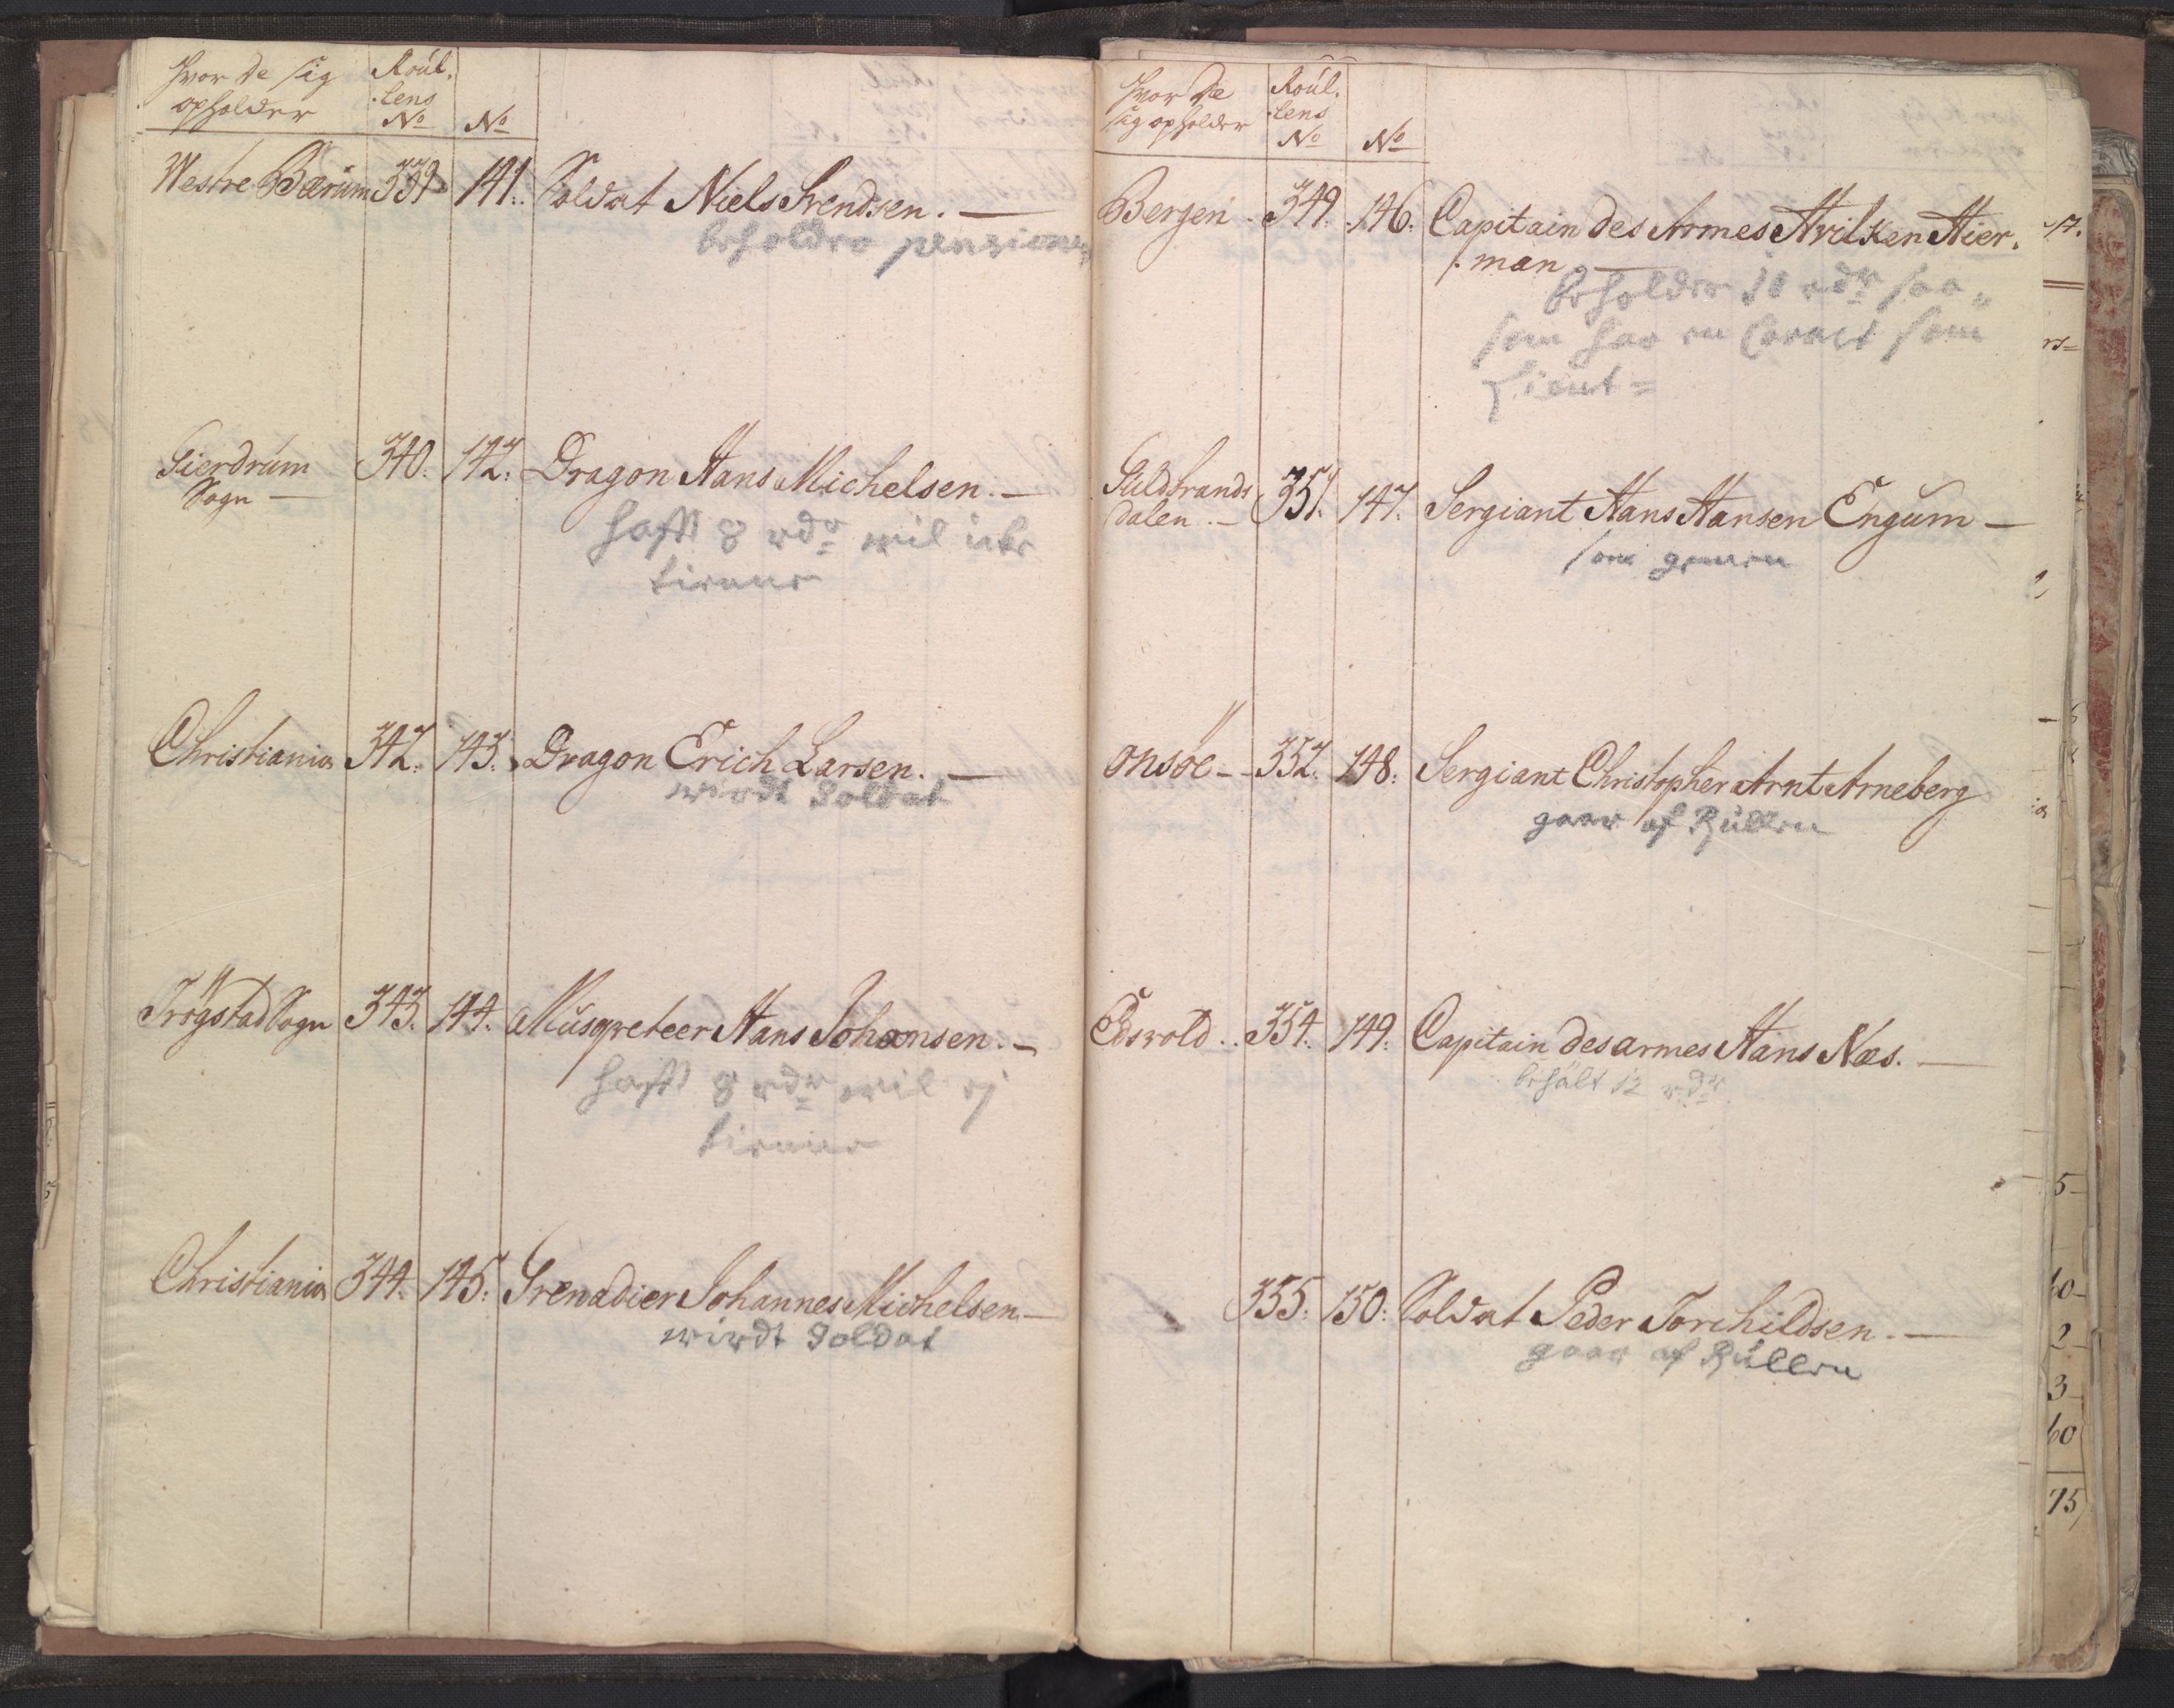 Hvor de sig Roúl.
opholder .lens
No No
Westre Bærum 339 141. Soldat Niels Svendsen. —
beholder pensionen
Gierdrúm 340. 142. Dragon Hans Michelsen. —
Sogn —
hafft 8 rdr wil icke
tienne
Christiania 342. 143. Dragon Erich Larsen. —
wirdt Soldat
Trögstad Sogn 343. 144. Músqveteer Hans Johansen. —
hafft 8 rdr wil ej
tienne
Christiania 344. 145. Grenadier Johannes Michelsen —
wirdt Soldat
Hvor de Roúl.
sig opholder .lens
No No
Bergen 349. 146. Capitain des Armes Hvilken Hier.
.man —
beholder 18 rdr saa
som har en Caract som
Lieut=
Guldbrands 351. 147. Sergiant Hans Hansen Engúm —
dalen. —
som gemen
Onsöe — 352. 148. Sergiant Christopher Arnt Arneberg
gaar af Rúllen
Edsvold .. 354. 149. Capitain des armes Hans Næs. —
behält 12 rdr
355. 150. Soldat Peder Torchildsen. —
gaar af Rúllen
5
2
3
60
75